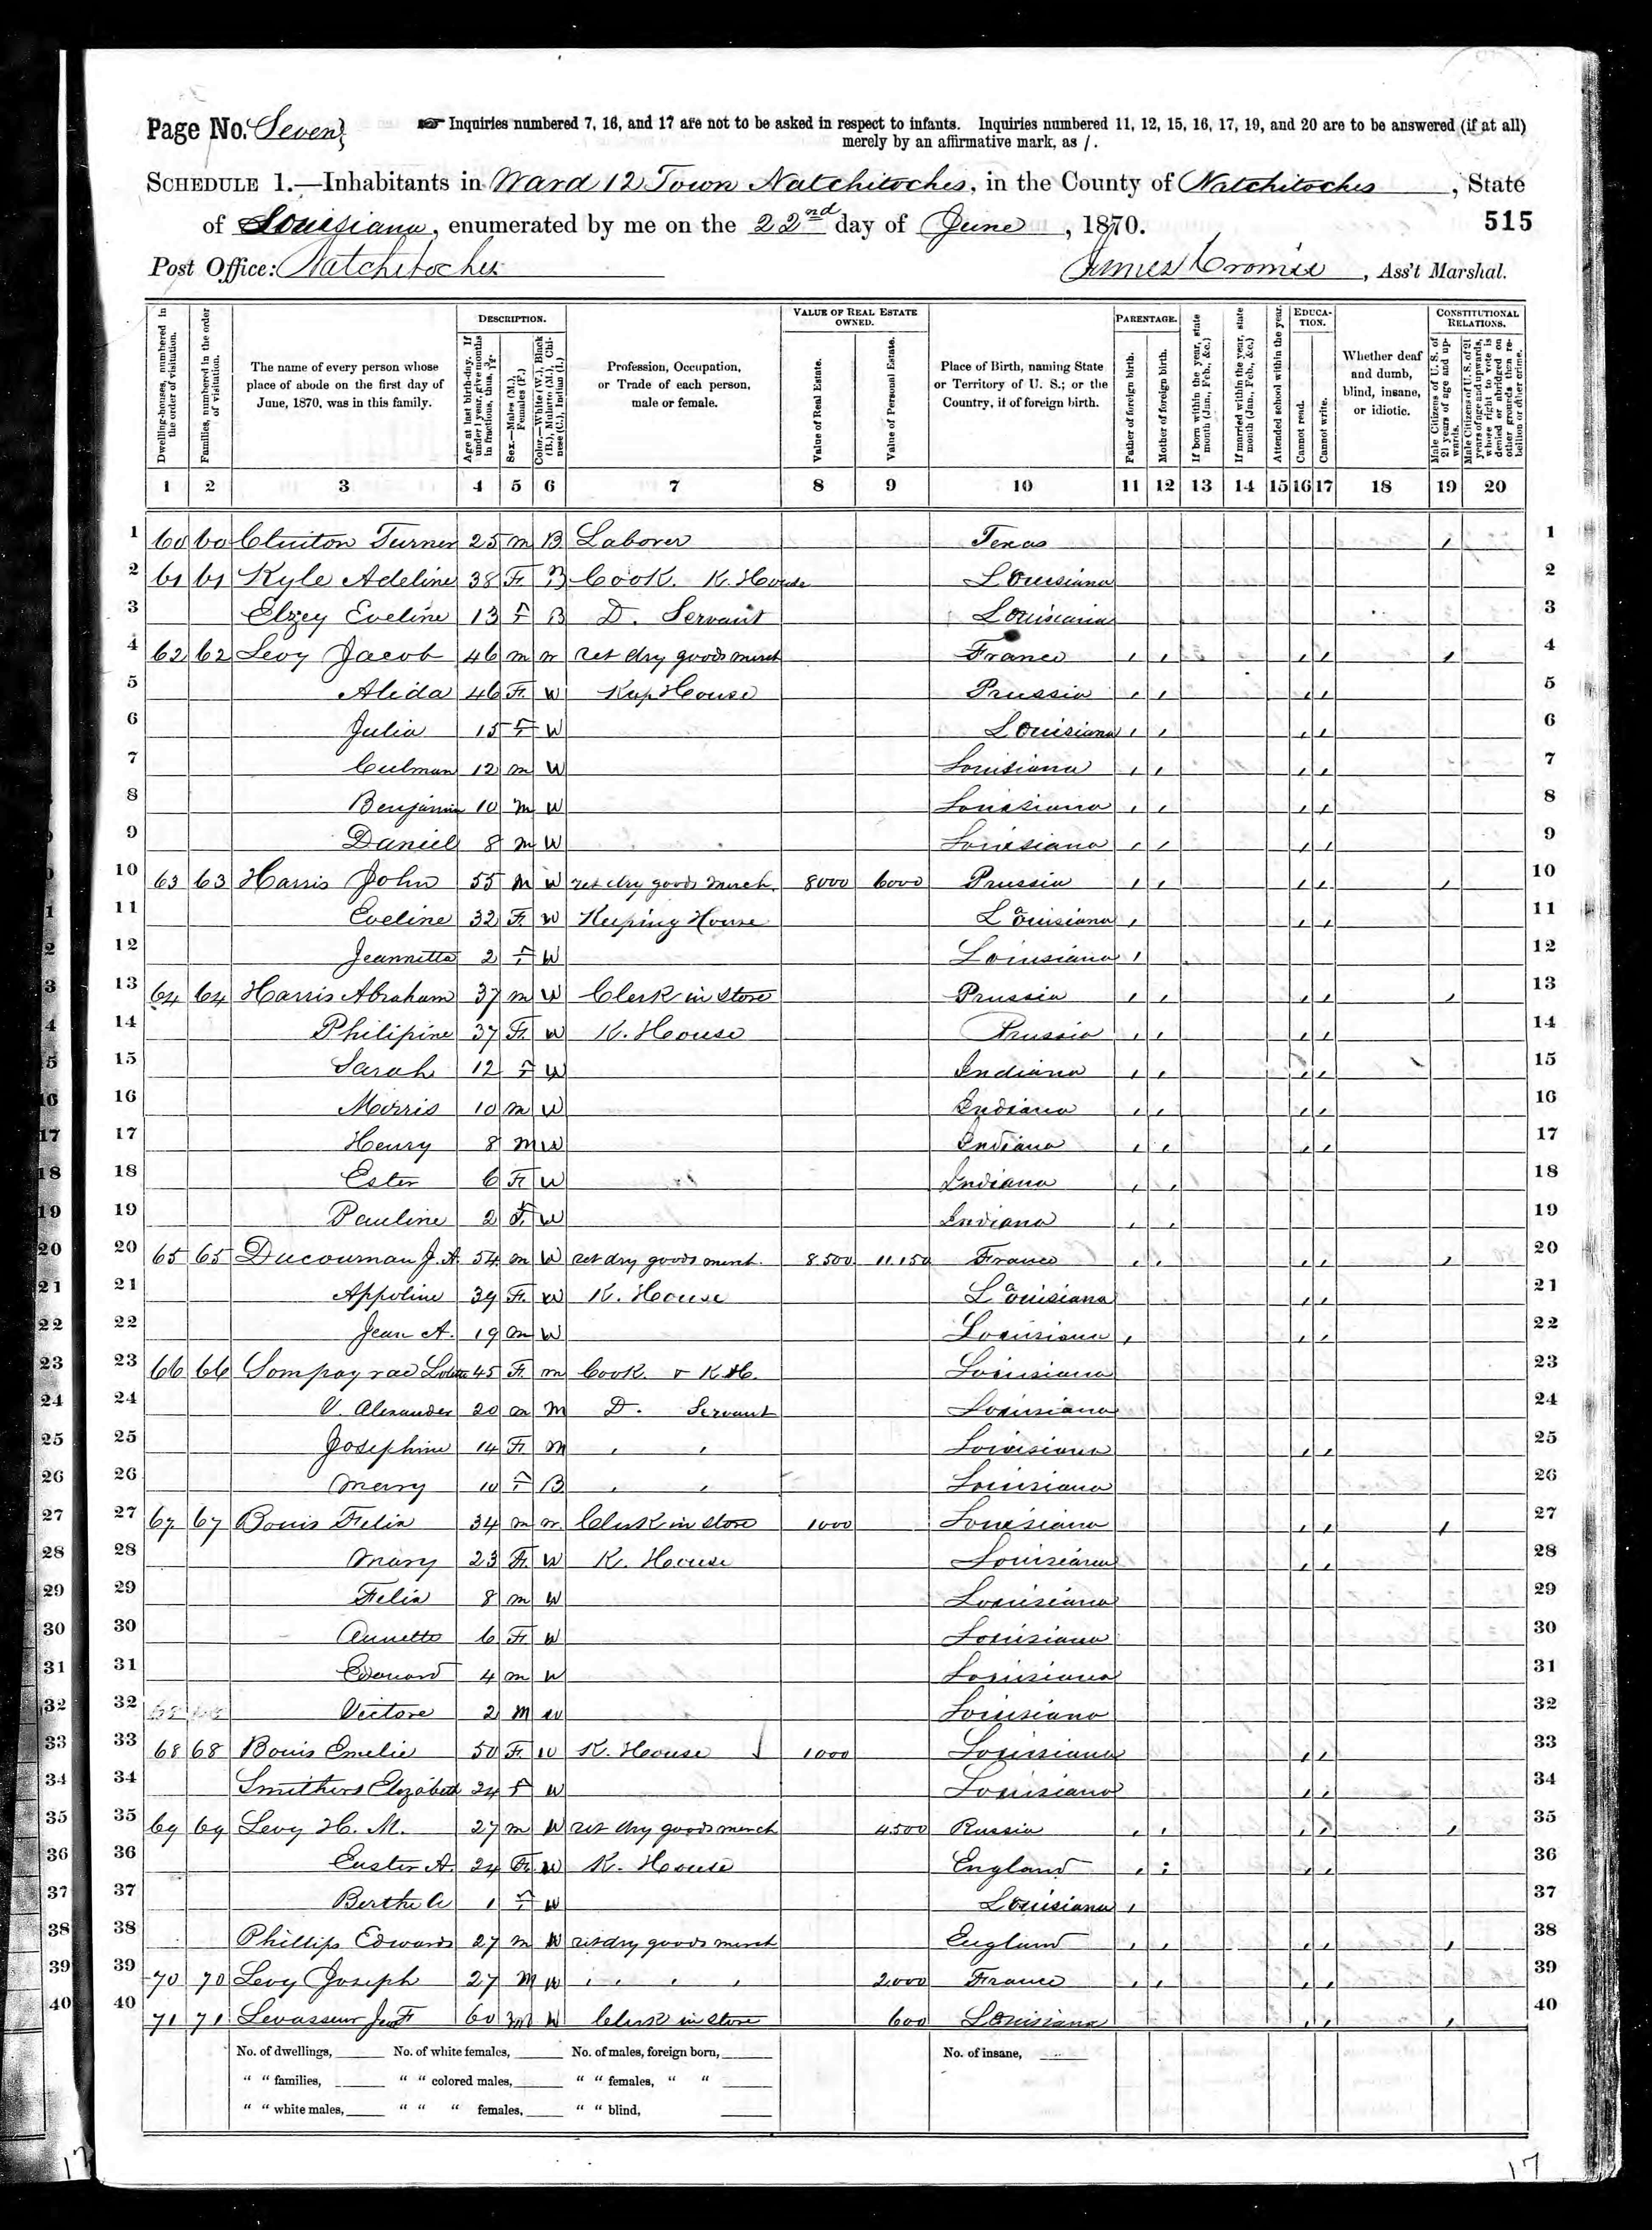 Page No. Seven} Inquiries numbered 7, 16, and 17 are not to be asked in respect to infants. Inquiries numbered 11, 12, 15, 16, 17, 19, and 20 are to be answered (if at all)
merely by an affirmative mark, as /.
SCHEDULE 1.—Inhabitants in Ward 12 Town Natchitoches, in the County of Natchitoches, State
of Louisiana, enumerated by me on the 22nd day of June, 1870. 515
Post Office: Natchitoches James Cromie, Ass't Marshal.
Dwelling-houses, numbered in the order of visitation.
Families, numbered in the order of visitation.
The name of every person whose place of abode on the first day of June, 1870, was in this family.
DESCRIPTION.
Age at last birth-day. If under 1 year, give months in fractions, thus, 3/12.
Sex.—Males (M.), Females (F.)
Color.—White (W.), Black (B.), Mulatto (M.), Chinese (C.), Indian (I.)
Profession, Occupation, or Trade of each person, male or female.
VALUE OF REAL ESTATE OWNED.
Value of Real Estate.
Value of Personal Estate.
Place of Birth, naming State or Territory of U. S.; or the Country, if of foreign birth.
PARENTAGE.
Father of foreign birth.
Mother of foreign birth.
If born within the year, state month (Jan., Feb., &c.)
If married within the year, state month (Jan., Feb., &c.)
Attended school within the year.
EDUCATION.
Cannot read.
Cannot write.
Whether deaf and dumb, blind, insane, or idiotic.
CONSTITUTIONAL RELATIONS.
Male Citizens of U. S. of 21 years of age and upwards.
Male Citizens of U. S. of 21 years of age and upwards, whose right to vote is denied or abridged on other grounds than rebellion or other crime.
1 2 3 4 5 6 7 8 9 10 11 12 13 14 15 16 17 18 19 20
1 60 60 Clinton Turner 25 m B Laborer Texas / 1
2 61 61 Kyle Adeline 38 F B Cook. K. House Louisiana 2
3 Elzey Eveline 13 F B D. Servant Louisiana 3
4 62 62 Levy Jacob 46 m w ret dry goods merch France / / / / / 4
5 Alida 46 F. W Keep House Prussia / / / / 5
6 Julia 15 F W Louisiana / / / / 6
7 Culman 12 m W Louisiana / / / / 7
8 Benjamin 10 m W Louisiana / / / / 8
9 Daniel 8 m W Louisiana / / / / 9
10 63 63 Harris John 55 M W ret dry goods merch. 8000 6000 Prussia / / / / / 10
11 Eveline 32 F. W Keeping House Louisiana / / / 11
12 Jeannetta 2 F W Louisiana / 12
13 64 64 Harris Abraham 37 m W Clerk in Store Prussia / / / / / 13
14 Philipine 37 F. W K. House Prussia / / / / 14
15 Sarah 12 F W Indiana / / / / 15
16 Morris 10 m W Indiana / / / / 16
17 Henry 8 m W Indiana / / / / 17
18 Ester 6 F W Indiana / / 18
19 Pauline 2 F. W Indiana / / 19
20 65 65 Ducournau J. A. 54 m W ret dry goods merch. 8.500 11.150 France / / / / / 20
21 Appoline 39 F. W K. House Louisiana / / 21
22 Jean A. 19 m W Louisiana / / / 22
23 66 66 Sompayrac 45 F. m Cook. & K. H. Louisiana 23
24 V. Alexander 20 m M D. Servant Louisiana 24
25 Josephine 14 F. m " " Louisiana / / 25
26 Mary 10 F B " " Louisiana 26
27 67 67 Bouis Felix 34 m w Clerk in Store 1000 Louisiana / / / 27
28 Mary 23 F. W K. House Louisiana / / 28
29 Felix 8 m W Louisiana 29
30 Annette 6 F. W Louisiana 30
31 Edouard 4 m W Louisiana 31
32 Victore 2 M W Louisiana 32
33 68 68 Bouis Emelie 50 F. W K. House 1000 Louisiana / / 33
34 Smithers Elizabeth 24 F W Louisiana / / 34
35 69 69 Levy H. M. 27 m W ret dry goods merch 4.500 Russia / / / / / 35
36 Easter A. 24 F. W K. House England / / / / 36
37 Bertha A 1 F W Louisiana / 37
38 Phillips Edward 27 m W ret dry goods merch England / / / / / 38
39 70 70 Levy Joseph 27 M W " " " " 2.000 France / / / / / 39
40 71 71 Levasseur F 60 M W Clerk in Store 600 Louisiana / / / 40
No. of dwellings, No. of white females, No. of males, foreign born, No. of insane,
" " families, " " colored males, " " females, " "
" " white males, " " " females, " " blind,
17